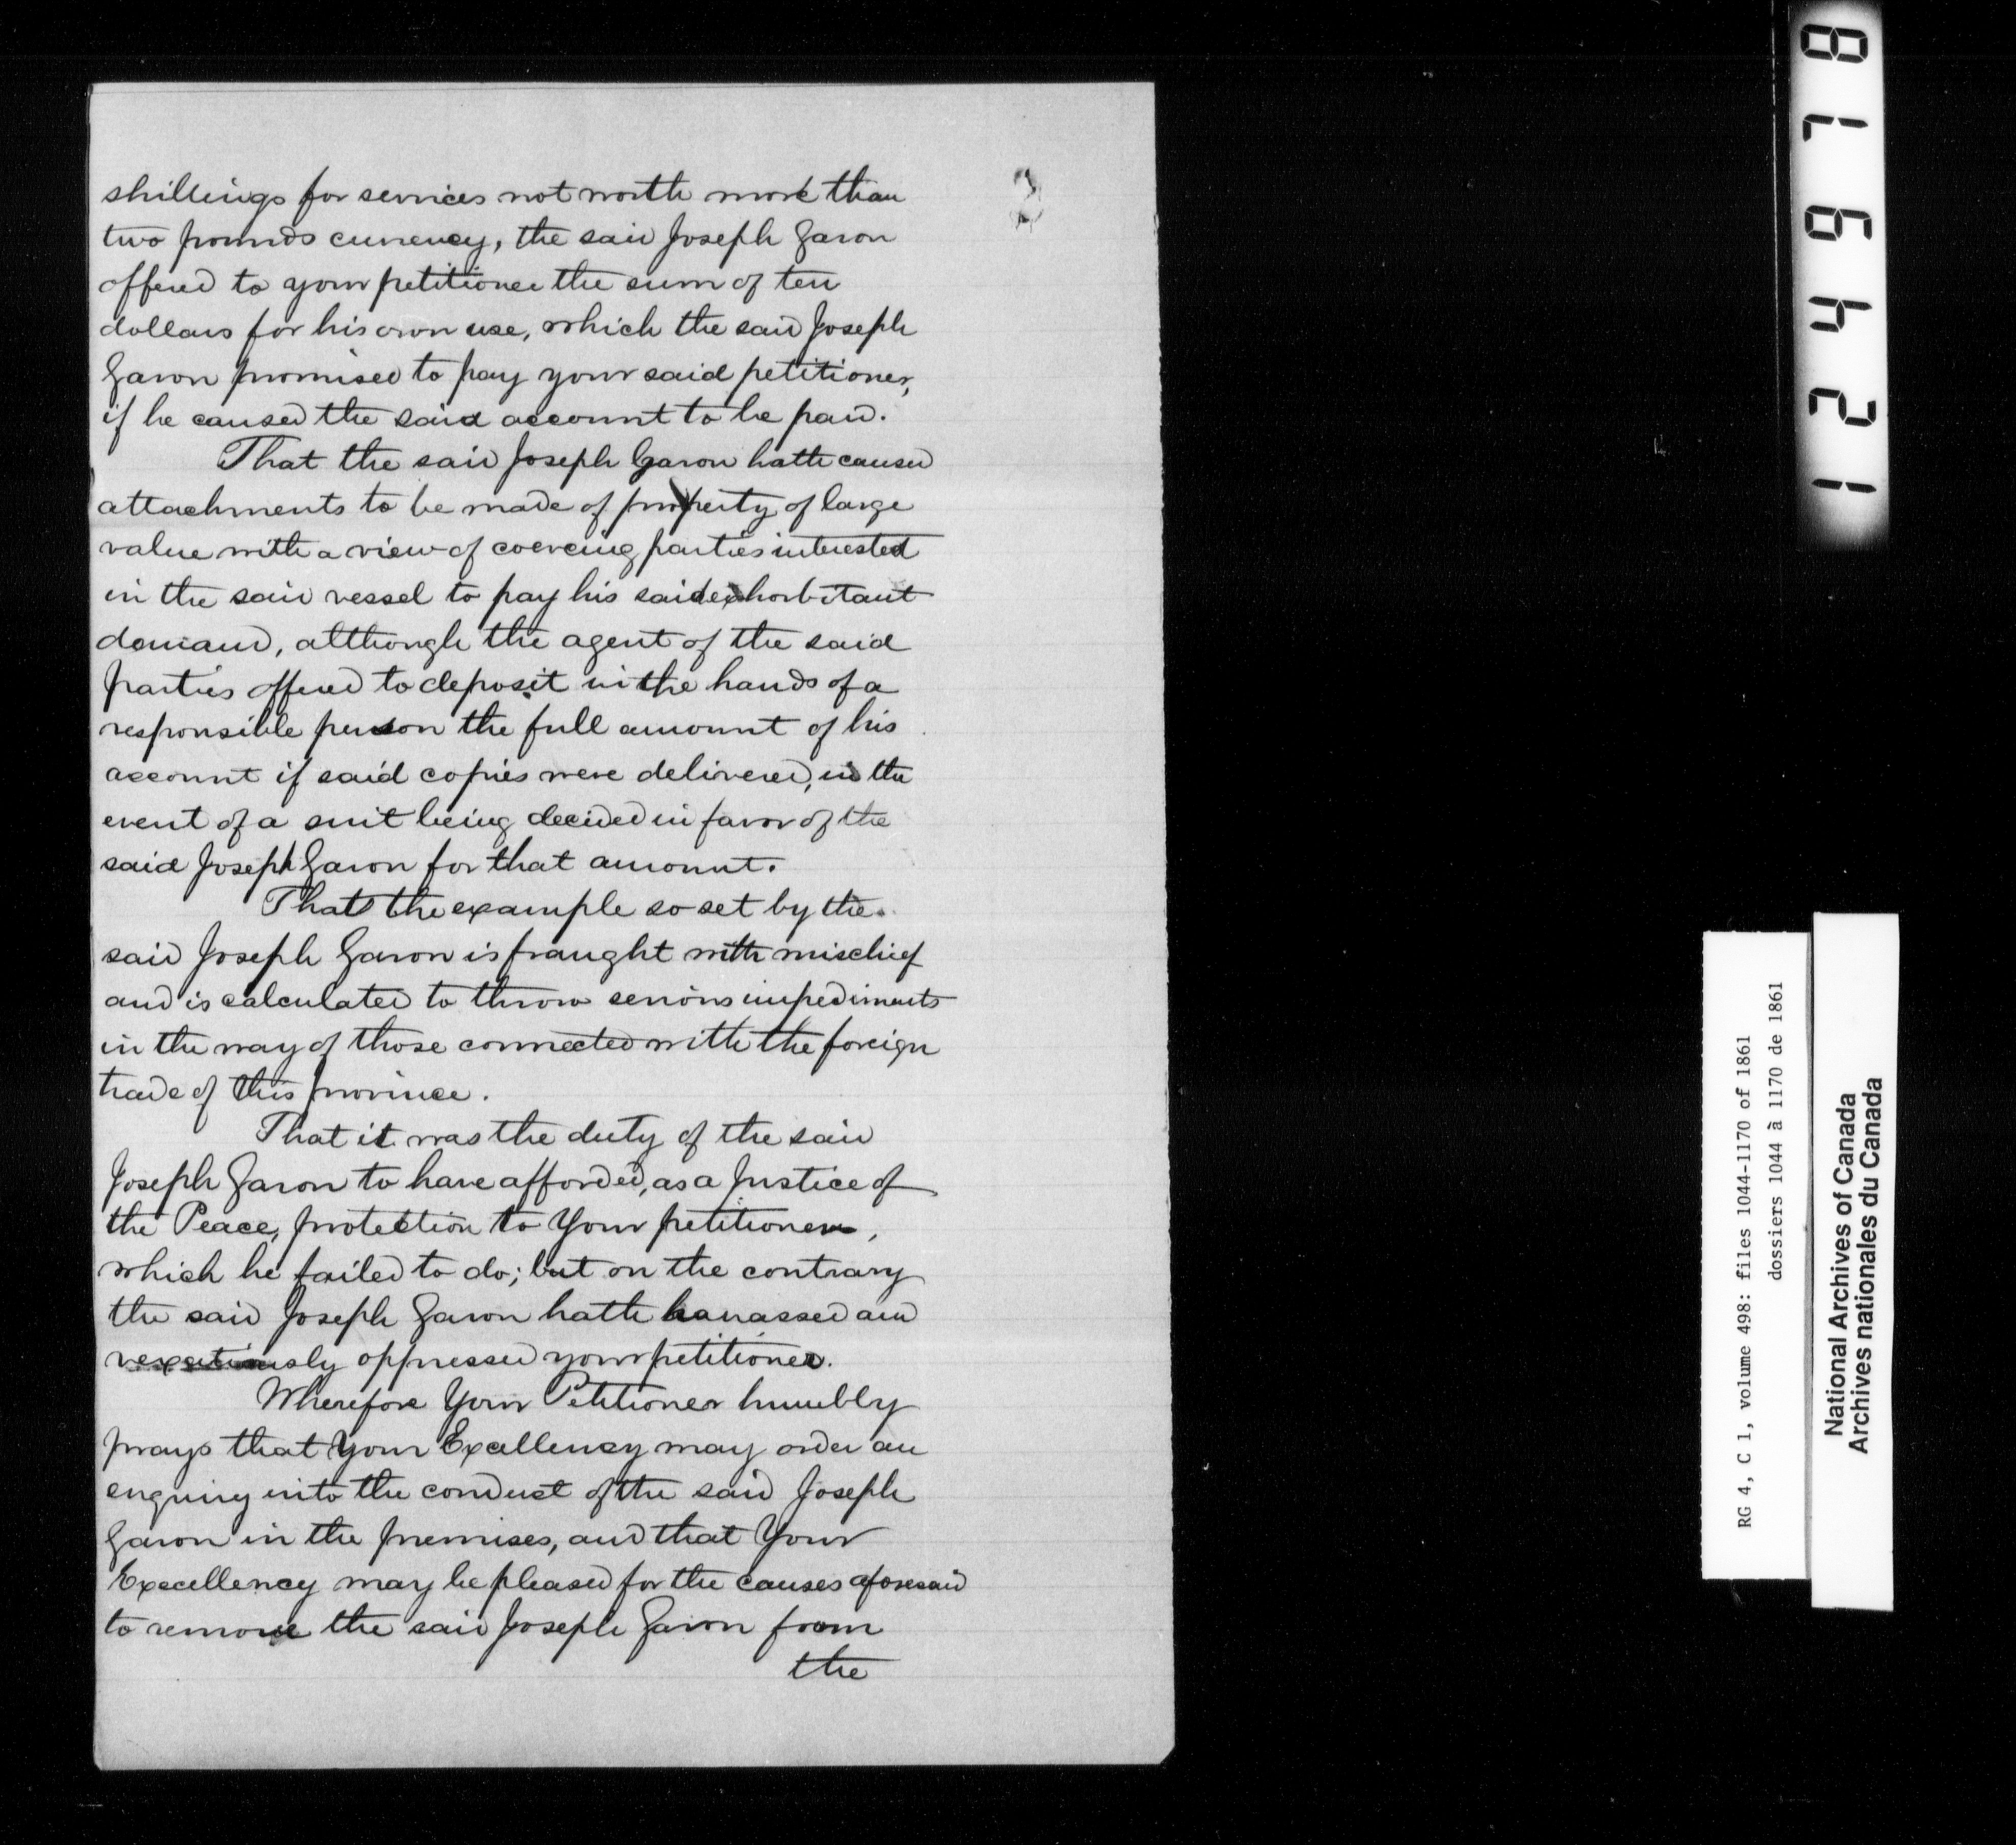 2
shillings for services not worth more than
two pounds currency, the said Joseph Garon
offered to your petitioner the sum of ten
dollars for his own use, which the said Joseph
Garon promised to pay your said petitioner,
if he caused the said account to be paid.
That the said Joseph Garon hath caused
attachments to be made of property of large
value with a view of coercing parties interested
in the said vessel to pay his said exhorbitant
demand, although the agent of the said
parties offered to deposit in the hands of a
responsible person the full amount of his
account if said copies were delivered, in the
event of a suit being decided in favor of the
said Joseph Garon for that amount.
That the example so set by the
said Joseph Garon is fraught with mischief
and is calculated to throw serious impediments
in the way of those connected with the foreign
trade of this province.
That it was the duty of the said
Joseph Garon to have afforded, as a Justice of
the Peace, protection to Your petitioner,
which he failed to do; but on the contrary
the said Joseph Garon hath harassed and
vexatiously oppressed your petitioner.
Wherefore Your Petitioner humbly
prays that Your Excellency may order an
enquiry into the conduct of the said Joseph
Garon in the premises, and that Your
Execellency may be pleased for the causes aforesaid
to remove the said Joseph Garon from
the
124678
RG 4, C 1, volume 498: files 1044-1170 of 1861
dossiers 1044 à 1170 de 1861
National Archives of Canada
Archives nationales du Canada